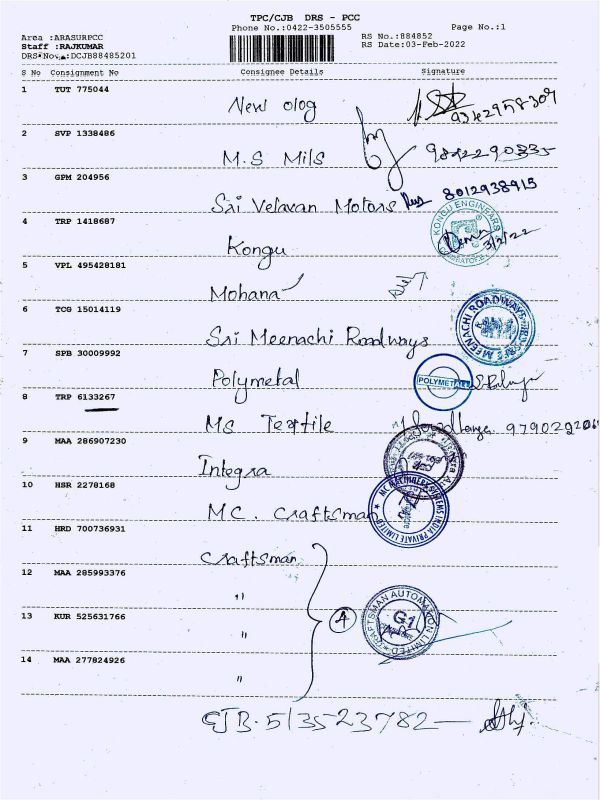 TPC/CJB DRS - PCC
Phone No.:0422-3505555 Page No.:1
Area :ARASURPCC RS No.:884852
Staff :RAJKUMAR RS Date:03-Feb-2022
DRS No.:DCJB88485201
S No Consignment No Consignee Details Signature
1 TUT 775044
New olog 9342957307
2 SVP 1338486
M.S Mils
3 GPM 204956 8012938915
Sri Velavan Motors
4 TRP 1418687 KONGU ENGINEARS COIMBATORE
Kongu 3/2/22
5 VPL 495428181
Mohana
6 TCG 15014119 MEENACHI ROADWAYS
Sri Meenachi Roadways
7 SPB 30009992
Polymetal POLYMETALS
8 TRP 6133267
MS Textile
9 MAA 286907230
Integra
10 HSR 2278168
M C. Craftsman PRIVATE LIMITED
11 HRD 700736931
Craftsman
12 MAA 285993376
"
13 KUR 525631766 CRAFTSMAN AUTOMATION LIMITED
" 4 G1
14 MAA 277824926
"
CJB. 513523782